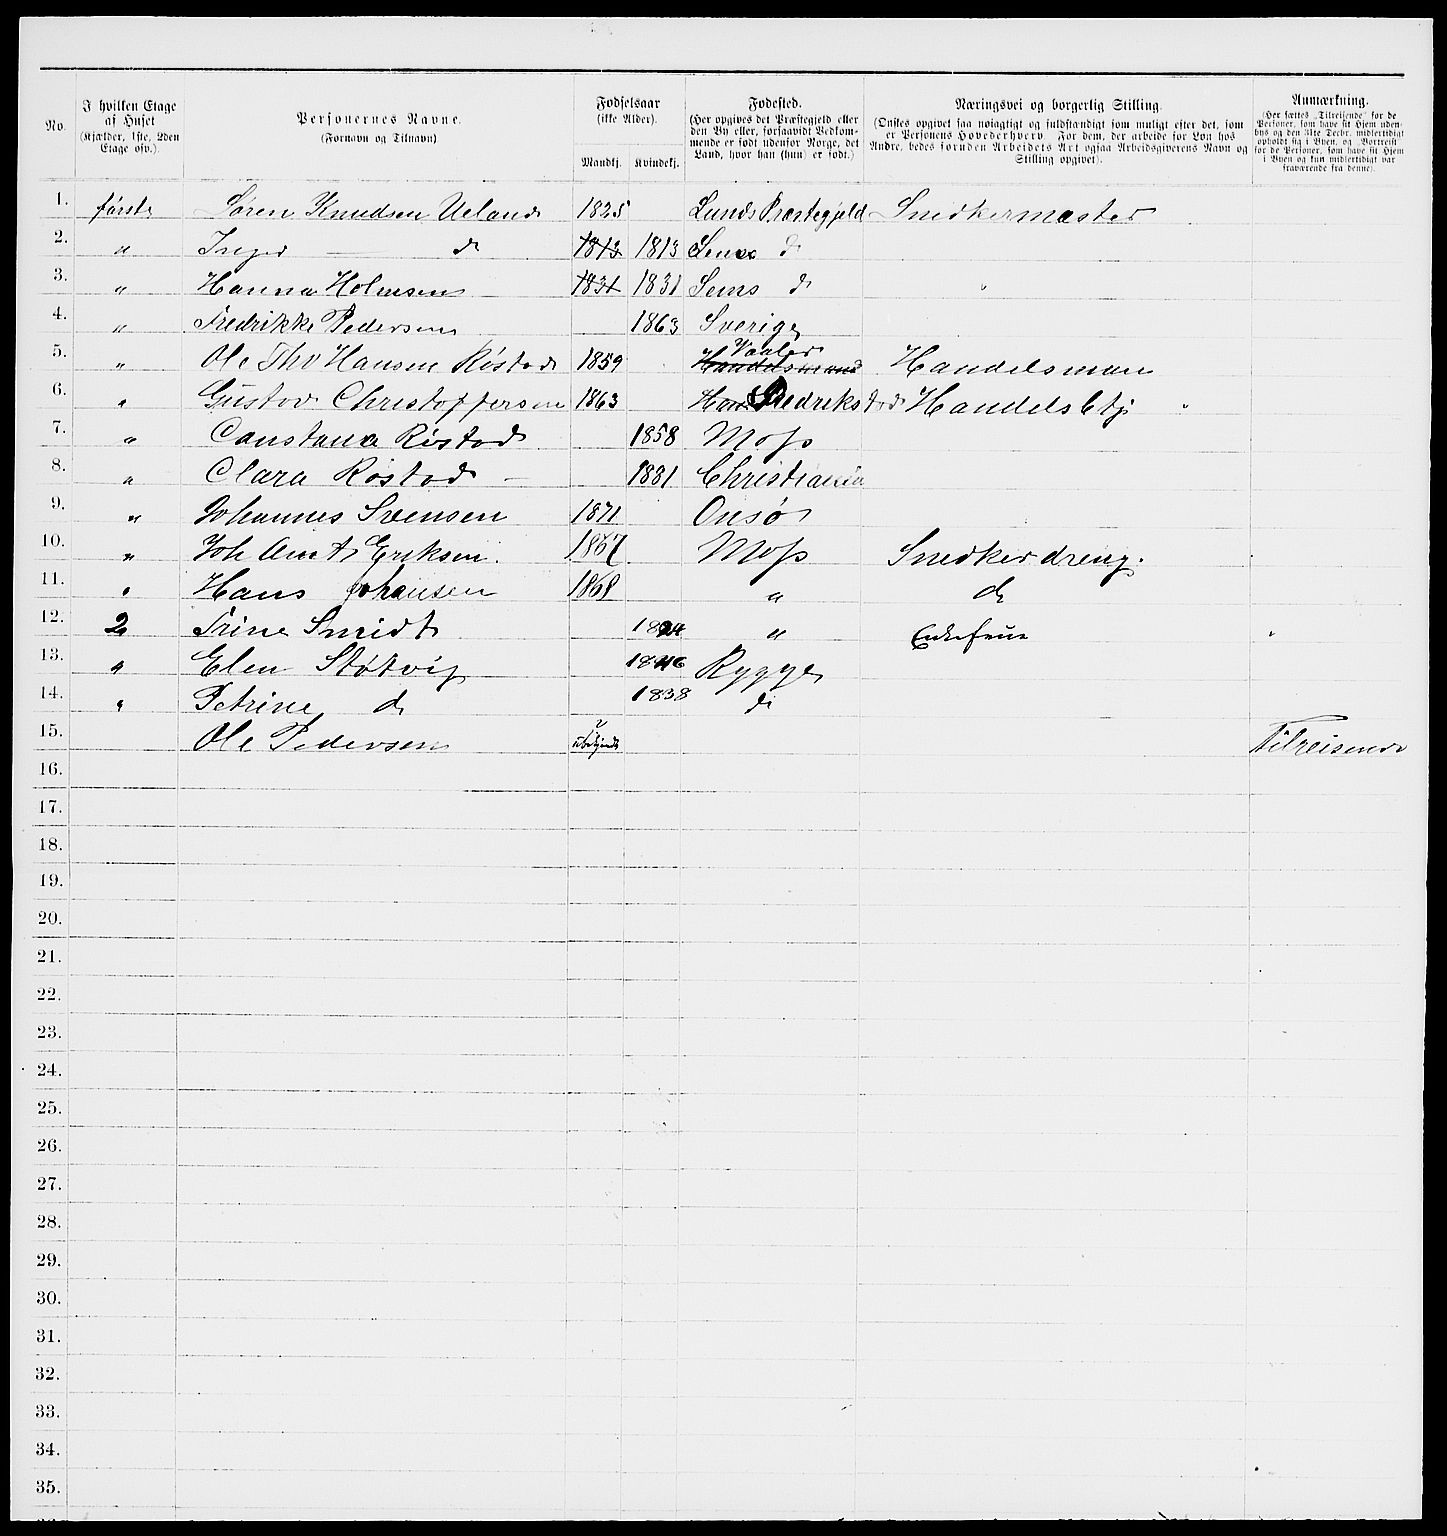 No. | I hvilken Etage af Huset (Kjælder, 1ste, 2den Etage osv.). | Personernes Navne. (Fornavn og Tilnavn) | Fødselsaar (ikke Alder). Mandkj. | Kvindekj. | Fødested. (Her opgives det Præstegjeld eller den By eller, forsaavidt Vedkommende er født udenfor Norge, det Land, hvor han (hun) er født.) | Næringsvei og borgerlig Stilling. (Ønskes opgivet saa nøiagtigt og fuldstændigt som muligt efter det, som er Personens Hovederhverv. For dem, der arbeide for Løn hos Andre, bedes foruden Arbeidets Art ogsaa Arbeidsgiverens Navn og Stilling opgivet). | Anmærkning. (Her sættes „Tilreisende“ for de Personer, som have sit Hjem udenbys og den 31te Decbr. midlertidigt opholdt sig i Byen, og „Bortreist“ for de Personer, som have sit Hjem i Byen og kun midlertidigt var fraværende fra denne).
1. første Søren Knudsen Ueland 1825 Lunds Præstegjeld Snedkermæster
2. " Inger — do 1813 1813 do
3. " Hanna Holmsen 1831 1831 Sems do
4. " Fredrikke Pedersen 1863 Sverige
5. " Ole Thv Hansen Røstad 1859 Handelsmand Vaaler Handelsman
6. " Gustav Christoffersen 1863 Fredrikstad Handelsbtj
7. " Constance Røstad 1858 Moss
8. " Clara Røstad 1881 Christiania
9. " Johannes Svensen 1871 Onsø
10. " Joh Arnt Eriksen. 1867 Moss Snedkerdreng.
11. " Hans Johansen 1868 " do
12. 2 Trine Smidt 1824 " Enkefrue
13. " Elen Støtvig 1846 Rygge
14. " Petrine do 1838 do
15. Ole Pedersen ubekjendt Tilreisende
16.
17.
18.
19.
20.
21.
22.
23.
24.
25.
26.
27.
28.
29.
30.
31.
32.
33.
34.
35.